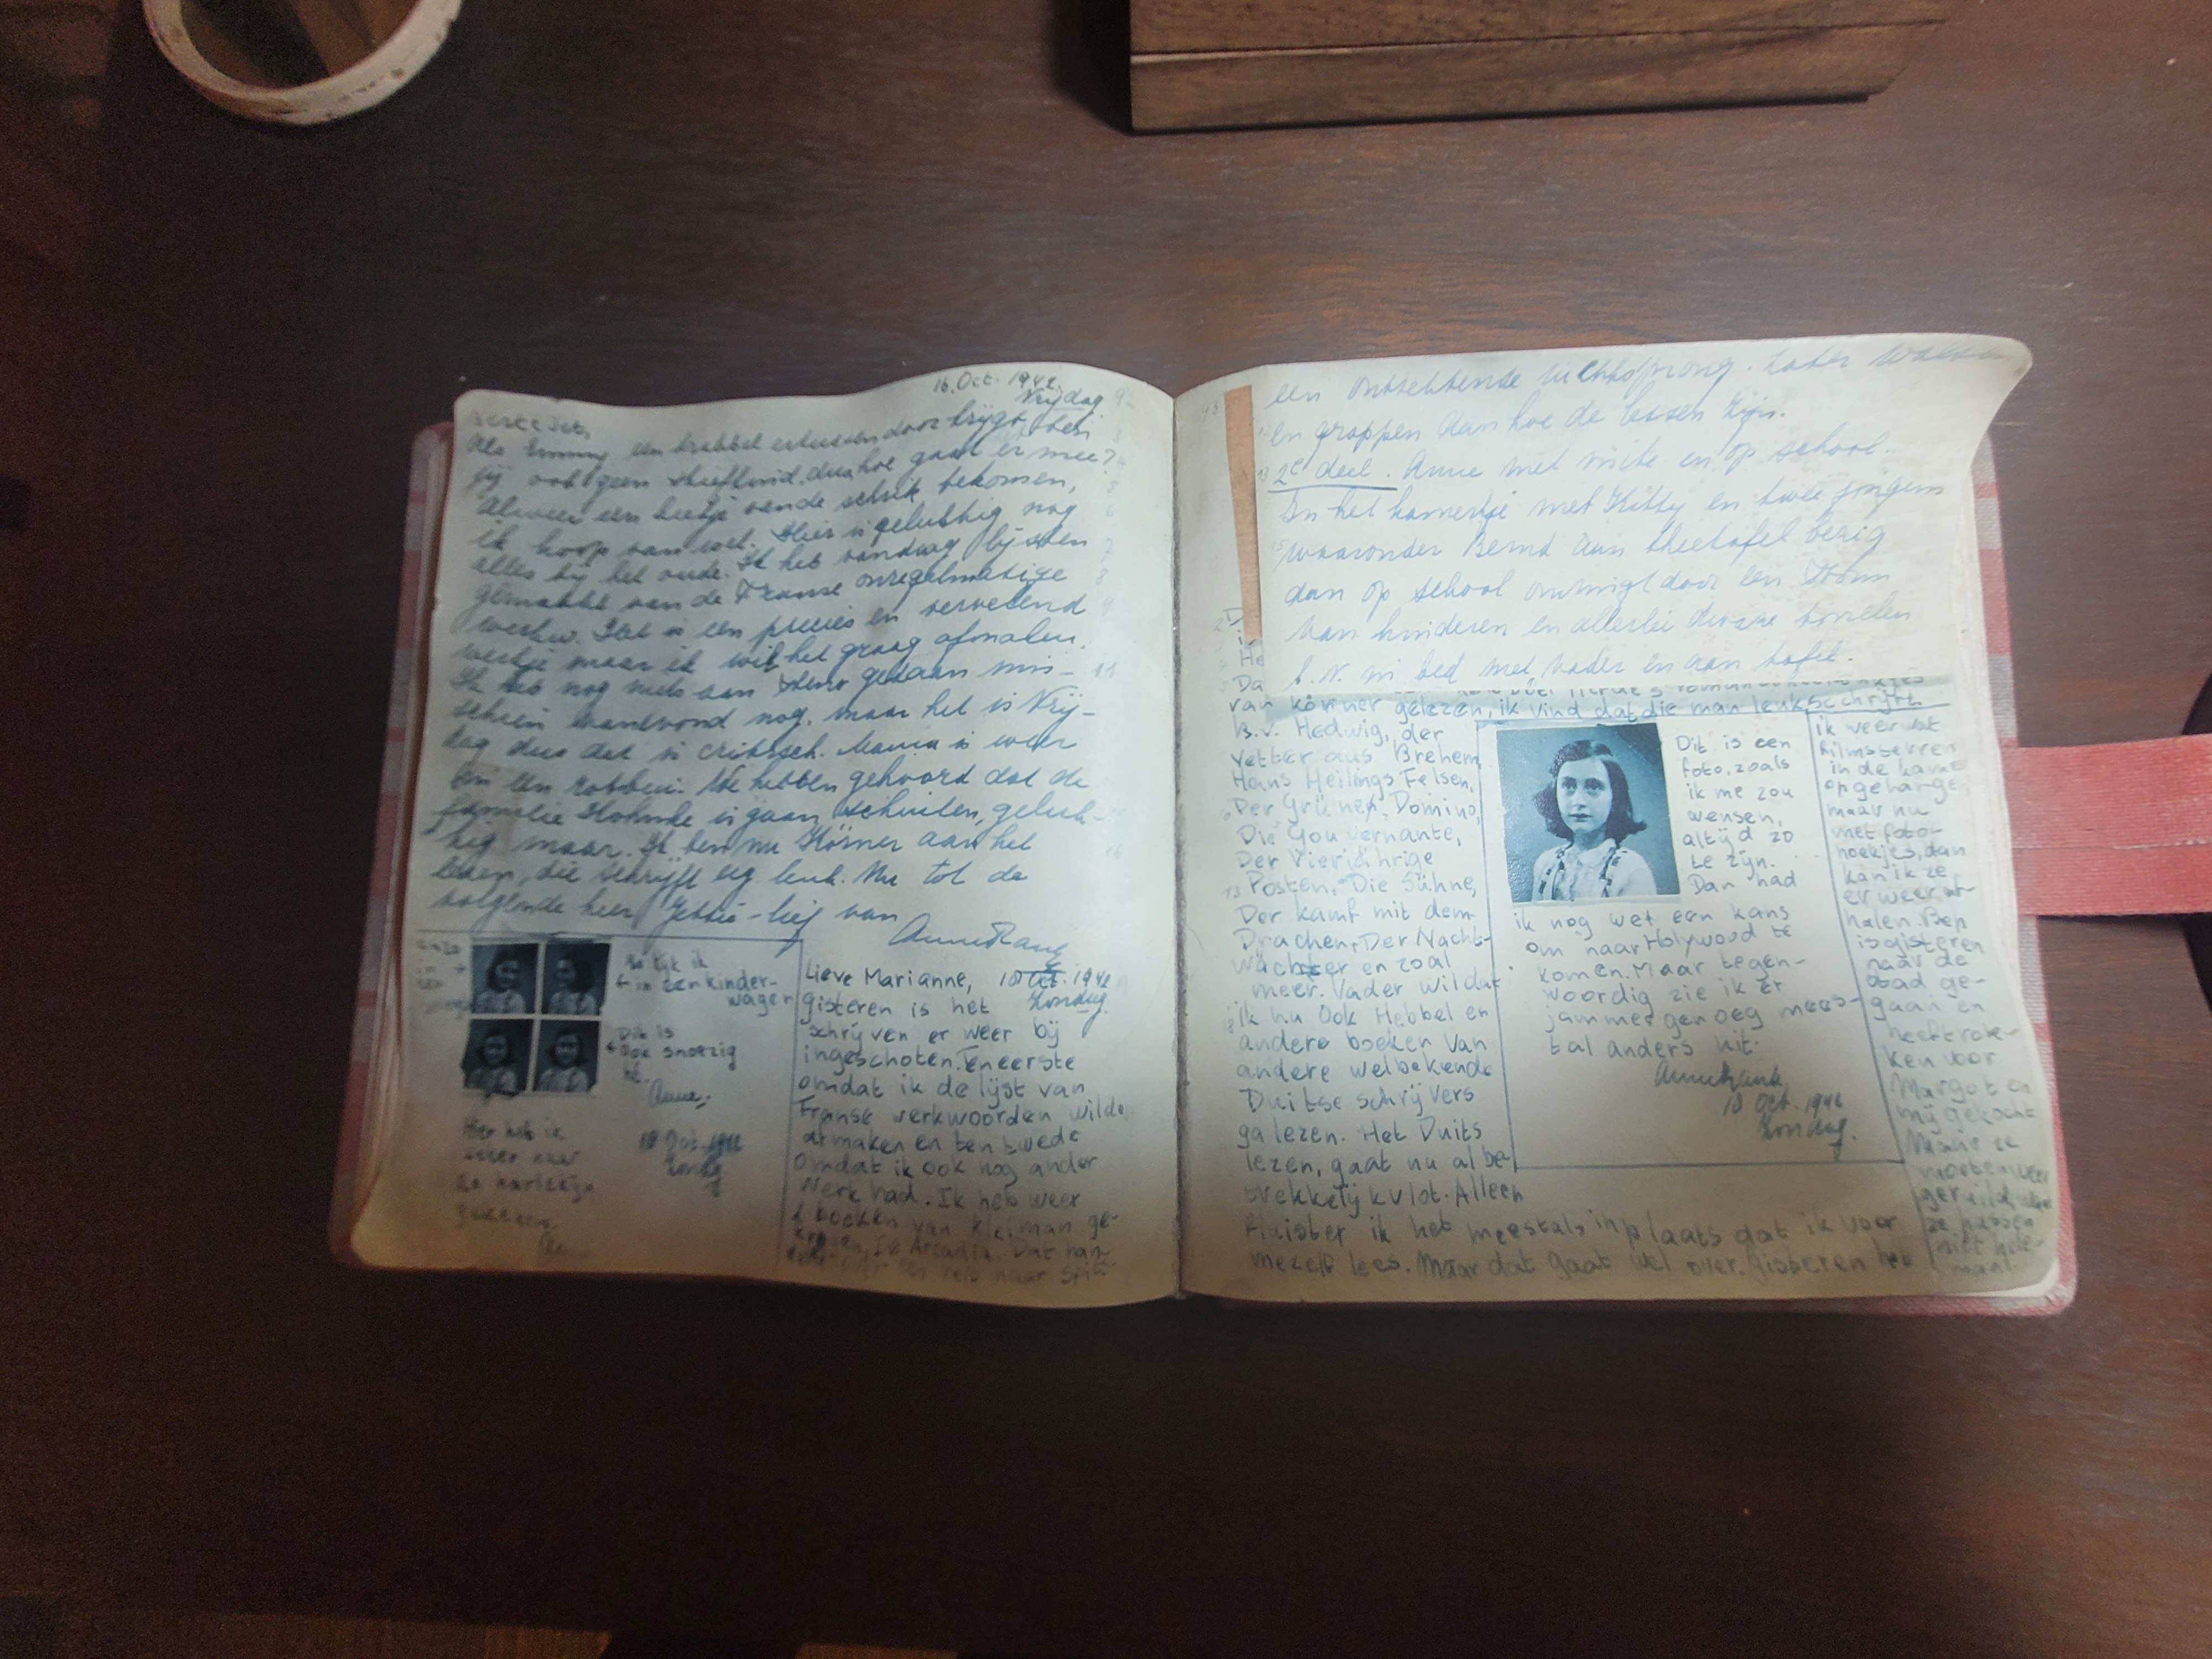 16. Oct. 1942.
Vrijdag
Beste Jet,
Als Emmy een krabbel ertussendoor krijgt, ben
jij ook geen stiefkind, dus hoe gaat er mee?
Alweer een beetje van de schrik bekomen,
ik hoop van wel. Hier is gelukkig nog
alles bij het oude. Ik heb vandaag lijsten
gemaakt van de Franse onregelmatige
werkw. Het is een precies en vervelend
werkje maar ik wil het graag afmaken.
Ik heb nog niets aan steno gedaan mis-
schien vanavond nog, maar het is Vrij-
dag dus dat is critisch. Mama is weer
We hebben gehoord dat de
familie is gaan schuilen, geluk-
kig maar. Ik ben nu Körner aan het
lezen, die schrijft erg leuk. Nu tot de
volgende keer Jettie-lief van
Anne Frank
in een kinder-
wagen
Dit is
ook snoezig
hè.
Anne.
18 Oct. 1942
Zondag
Hier heb ik
Lieve Marianne, 18 Oct. 1942
Zondag.
gisteren is het
schrijven er weer bij
ingeschoten. Ten eerste
omdat ik de lijst van
Franse werkwoorden wilde
afmaken en ten twede
omdat ik ook nog ander
werk had. Ik heb weer
2 boeken van Kleiman ge-
kregen, De Arcadia. Dat han-
delt over een reis naar Spits-
een ontzettende luchtsprong. Later walsen
en grappen aan hoe de lessen zijn.
2e deel. Anne met visite en op school.
In het kamertje met Kitty en twee jongens
waaronder Bernd aan theetafel bezig
dan op school omringd door een stroom
van kinderen en allerlei dwaze tonelen
b.v. in bed met vader en aan tafel.
van körner gelezen, ik vind dat die man leuk schrijft.
B.v. Hedwig, der
Vetter aus Brehem,
Hans Heilings Felsen,
Der Grüner Domino,
Die Gouvernante,
Der Vierjährige
Posten, Die Sühne,
Der kamf mit dem
Drachen, Der Nacht-
wächter en zoal
meer. Vader wil dat
ik nu ook Hebbel en
andere boeken van
andere welbekende
Duitse schrijvers
ga lezen. Het Duits
lezen, gaat nu al be-
trekkelijk vlot. Alleen
fluister ik het meestals inplaats dat ik voor
mezelf lees. Maar dat gaat wel over. Gisteren heb
Dit is een
foto, zoals
ik me zou
wensen,
altijd zo
te zijn.
Dan had
ik nog wel een kans
om naar Holywood te
komen. Maar tegen-
woordig zie ik er
jammer genoeg mees-
tal anders uit.
Anne Frank
18 Oct. 1942
Zondag.
ik weer wat
filmsterren
in de kamer
opgehangen,
maar nu
met foto-
hoekjes, dan
kan ik ze
er weer af-
halen. Bep
is gisteren
naar de
stad ge-
gaan en
heeft rok-
ken voor
Margot en
mij gekocht
Maar ze
moeten weer
geruild, want
ze passen
niet hele-
maal.